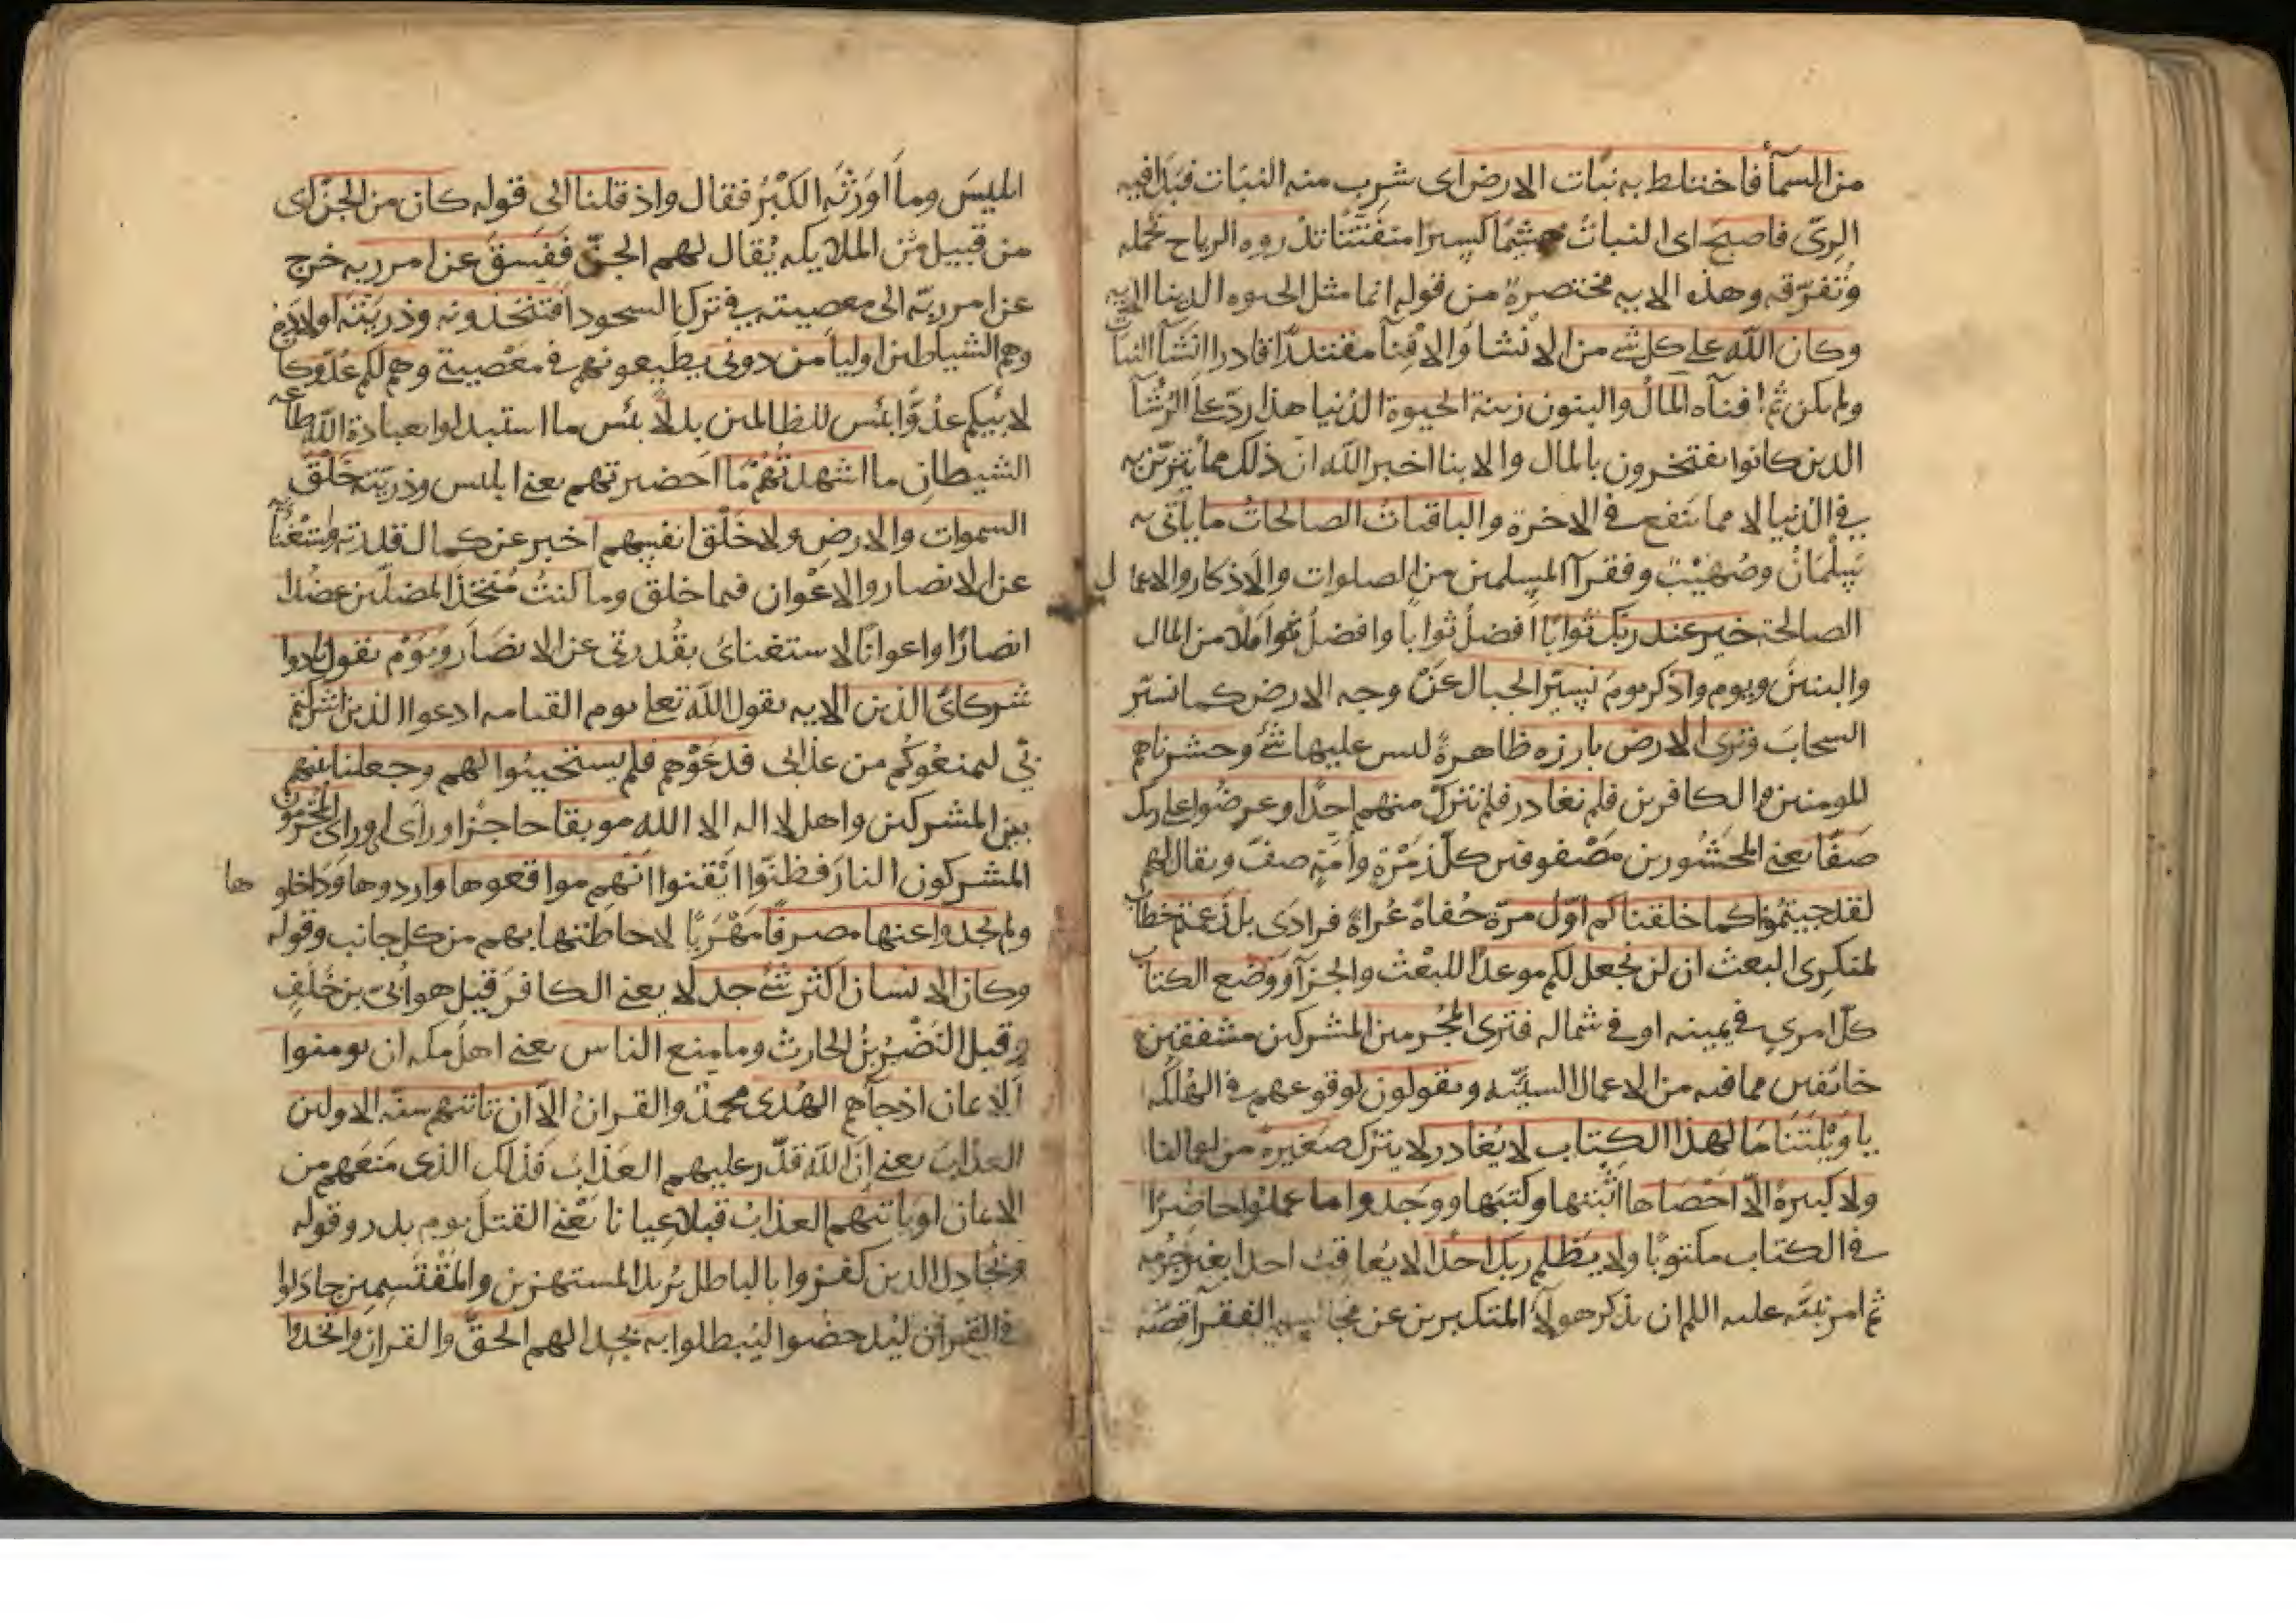 من السمآ فاختلط به نبات الارض اى شرب منه النبات فبدا فيه
الرىّ فاصبح اى النبات هشيمًا كسيرًا متفتّتًا تذروه الرياح تحمله
وتفرّقه وهذه الايه مختصرة من قوله انما مثل الحيوه الدينا الايه
وكان الله على كل شى من الانشا والافنآ مقتدرًا قادرا انشآ النبات
ولم يكن ثم افنآه المال والبنون زينة الحيوة الدنيا هذا ردّ على الرؤسآ
الدين كانوا يفتخرون بالمال والابنا اخبر الله انّ ذلك مما يتزيّن به
فى الدنيا لا مما ينفع فى الاخرة والباقيات الصالحات ما ياتى به
سلمان وصهيب وفقرآ المسلمين من الصلوات والاذكار والاعمال
الصالحة خير عند ربك ثوابًا افضل ثوابا وافضل املا من المال
والبنين ويوم واذكر يوم نسيّر الجبال عن وجه الارض كما نسيّر
السحاب وترى الارض بارزه ظاهرةً ليس عليها شى وحشرناهم
المومنين والكافرين فلم نغادر فلم نترك منهم احدًا وعرضوا على ربك
صفّا يعنى المحشورين مصفوفين كلّ زمرةٍ وامّةٍ صفّ ويقال لهم
لقد جيتمونا كما خلقناكم اوّل مرّة حُفاةً عُراةً فرادى بل زعمتم خطاب
لمنكرى البعث ان لن نجعل لكم موعدًا للبعث والجزآ ووضع الكتاب
كلّ امرىٍ فى يمينه او فى شماله فترى المجرمين المشركين مشفقين
خائفين مما فيه من الاعمال السيّئه ويقولون لوقوعهم فى الهلكه
يا ويلتنا ما لهذا الكتاب لا يغادر لا يترك صغيرةً من اعمالنا
ولا كبيرةً الّا احصاها اثبتها وكتبها ووجدوا ما عملوا حاضرًا
فى الكتاب مكتوبًا ولا يظلم ربك احدًا لا يعاقب احدا بغير جرمه
ثم امر نبيّه عليه اللم ان يذكر هولآ المتكبرين عن مجالسه الفقرآ قصّة
ابليس وما اورثه الكبْرُ فقال واذ قلنا الى قوله كان من الجنّ اى
من قبيل من الملايكه يُقال لهم الجنّ ففسق عن امر ربه خرج
عن امر ربّه الى معصيته فى ترك السجود افتتخذونه وذريّته اولاده
وهم الشياطين اوليآ من دونى يطيعونهم فى معصيتى وهم لكم عدوّ كما
لابيكم عدوًّا بئس للظالمين بدلًا بئس ما استبدلوا بعبادة الله طاعه
الشيطان ما اشهدتُهم ما احضرتهم يعنى ابليس وذريّته خلق
السموات والارض ولا خلق انفسهم اخبر عن كمال قدرته واستغنائه
عن الانصار والاعوان فيما خلق وما كنتُ متّخذ المضلّين عضدا
انصارًا واعوانًا لاستغنائى بقدرتى عن الانصار ويوم يقول نادوا
شركائى الذين الايه يقول الله تعلى يوم القيامه ادعوا الذين اشركتم
بى ليمنعوكم من عذابى فدعوْهم فلم يستجيبُوا لهم وجعلنا بينهم
بين المشركين واهل لا اله الا الله موبقا حاجزا وراى المجرمون
المشركون النار فظنّوا ايقنوا انّهم مواقعوها واردوها وداخلوها
ولم يجدوا عنها مصرفًا مَهْرَبًا لاحاطتها بهم من كل جانب وقوله
وكان الانسان اكثر شئ جدلا يعنى الكافر قيل هو اُبىّ بن خلف
وقيل النضْر بن الحارث وما منع الناس يعنى اهل مكه ان يومنوا
الايمان اذ جآهم الهُدى محمدٌ والقران الّا ان تاتيهم سنّه الاولين
العذاب يعنى انّ الله قدّر عليهم العذاب فذلك الذى منعهم من
الايمان او ياتيهم العذاب قبلا عيانا يعْنى القتل يوم بدر وقوله
ويجادل الدين كفروا بالباطل يُريد المستهزين والمقتسمين جادلوا
فى القرآن ليدحضوا ليبطلوا به بجدالهم الحقّ والقران واتخدوا